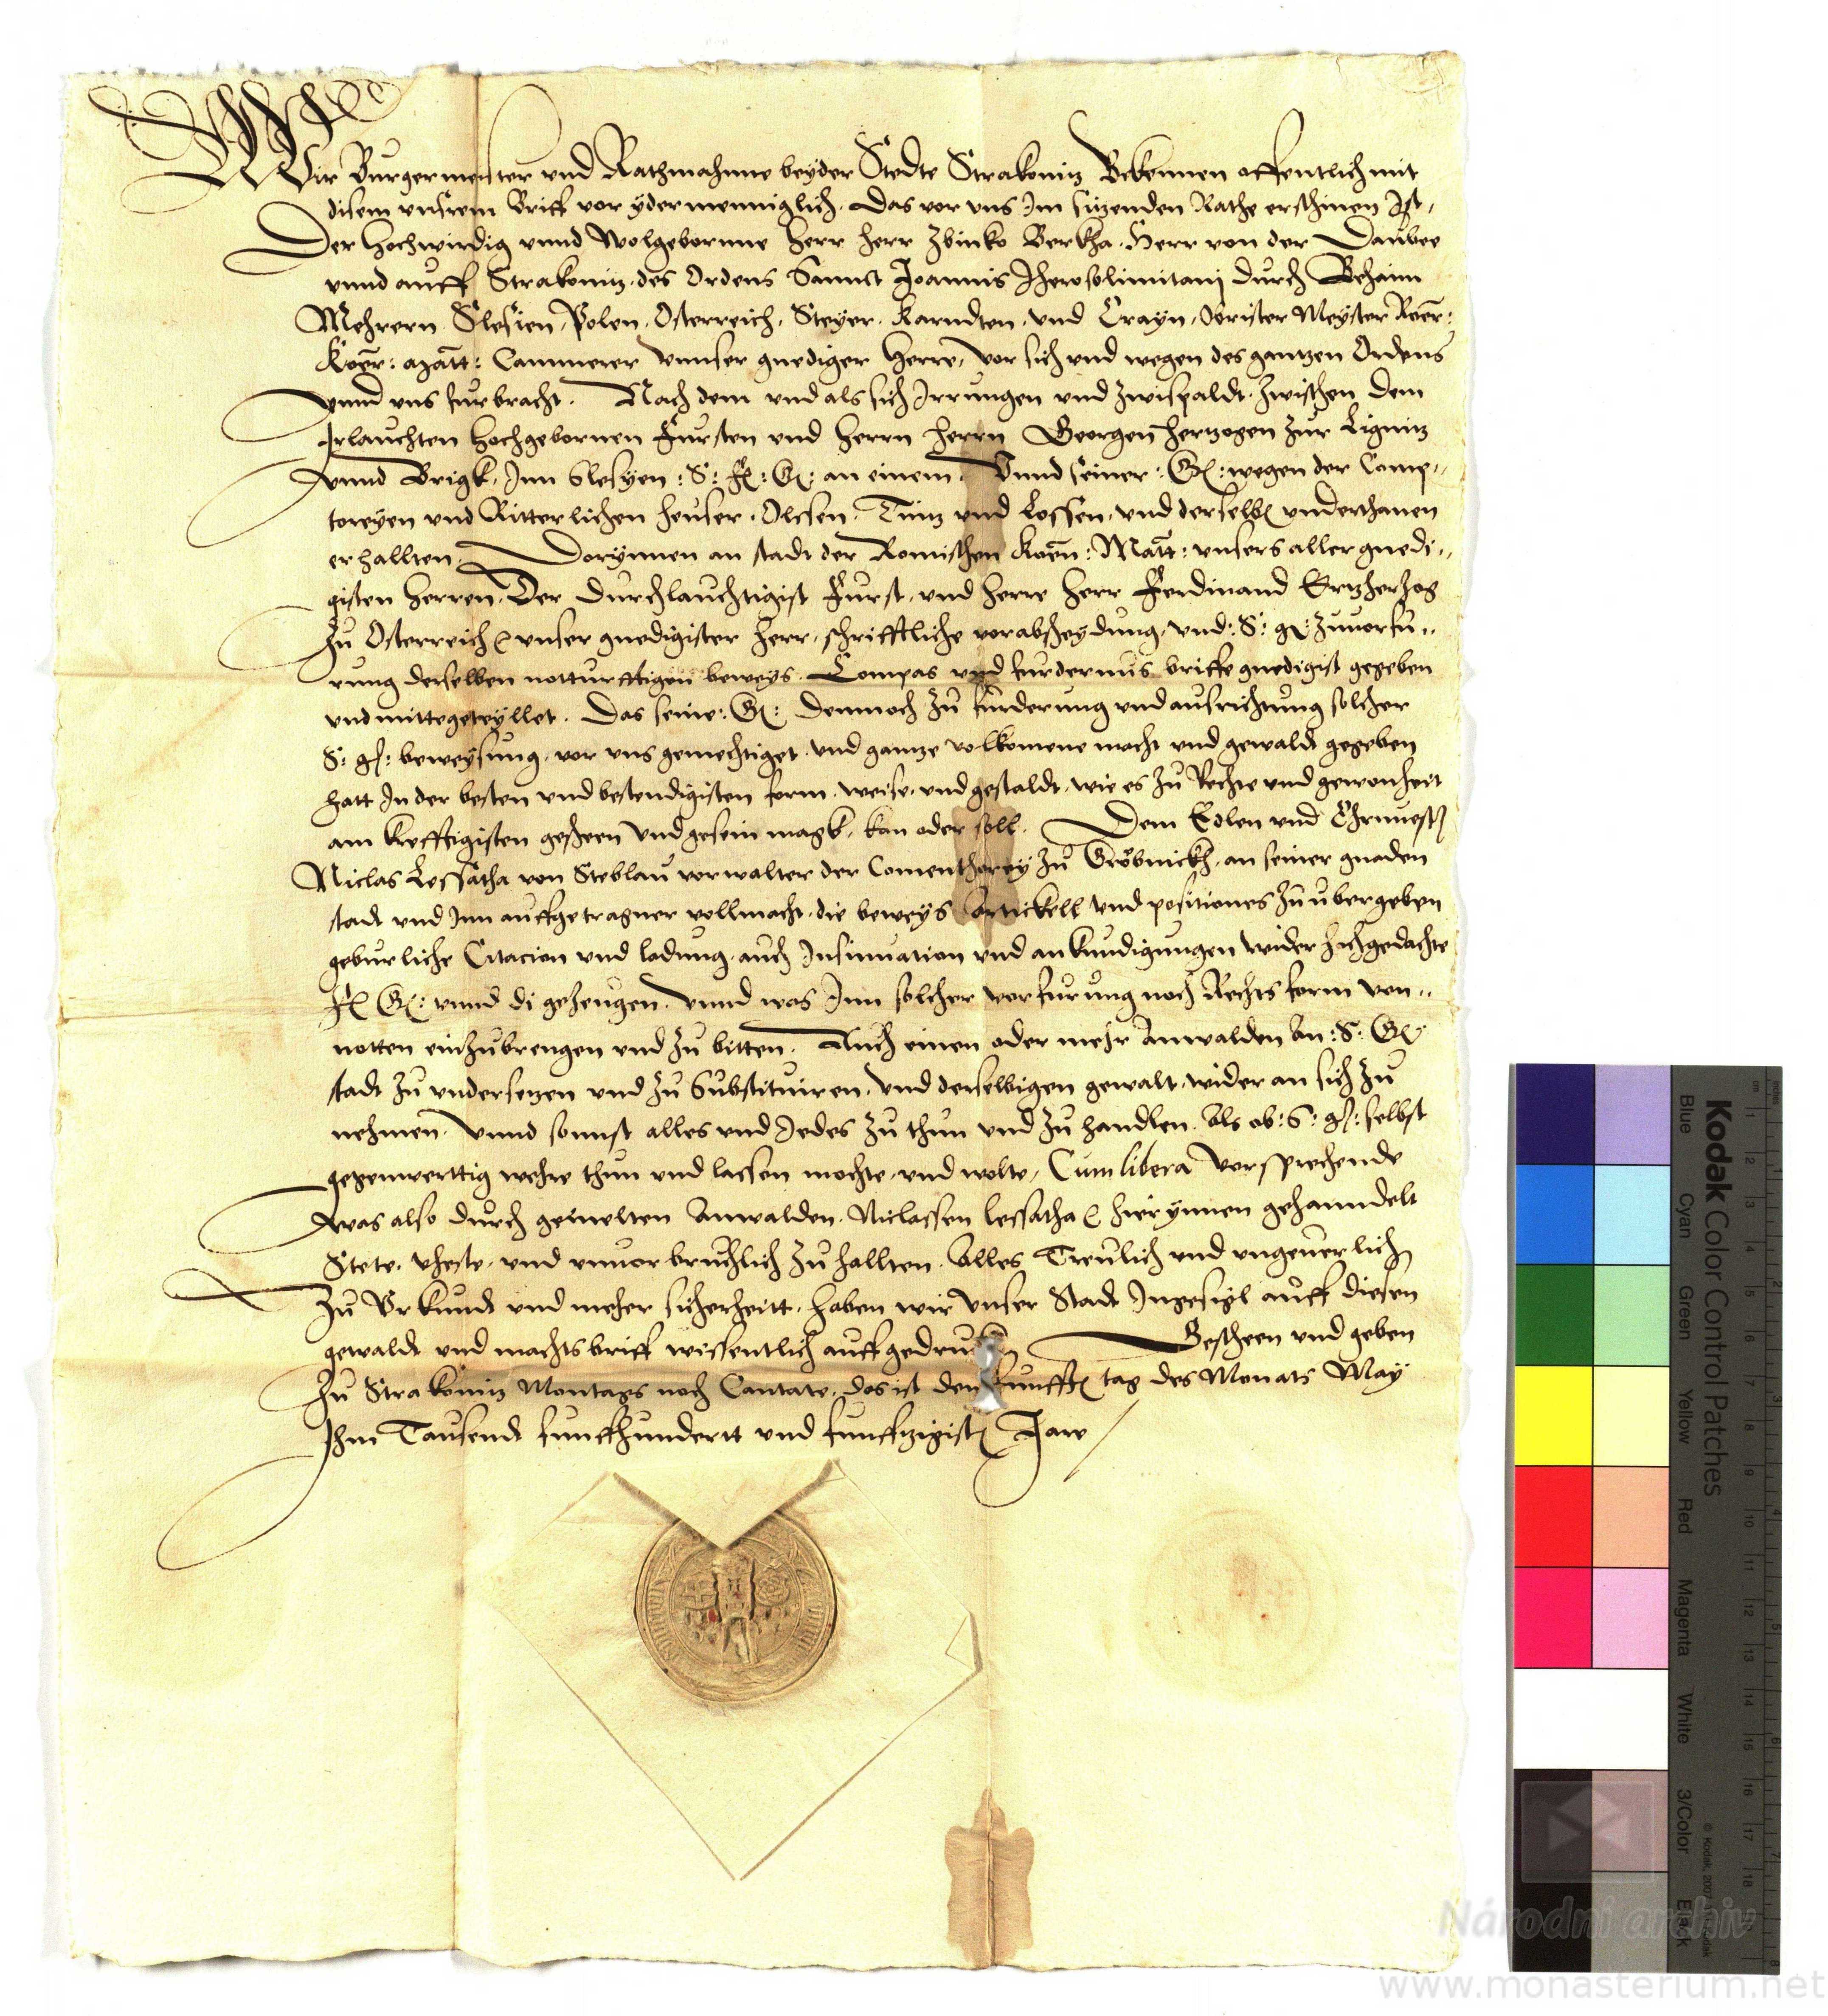 Wir Burgermeister vnd Rathmahnne beyder Stedte Strakonitz Bekennen offentlich mit
disem vnsrem Briff vor ydermenniglich. Das vor vns Im sitzenden Rathe erschinen Ist,
Der Hochwirdig vnnd Wolgebornne Herr Herr Zbinko Berkha. Herr von der Daubee
vnnd auff Strakonitz. des Ordens Sannct Joannis Iherosolimitanj durch Behaim
Mehrern Slesien, Polen. Osterreich, Steyer. Karndten. vnd Crayn, Obrister Meyster Roer:
Koer: Matt: Cammerer vnnser gnediger Herre, vor sich vnd wegen des gantzen Ordens
vnnd vns furbracht. Nach dem vnd als sich Irrungen vnd Zwispaldt. Zwischen dem
Irlauchten Hochgebornen Fursten vnd Herrn Herrn Georgen Hertzogen Zur Lignitz
vnnd Brigk, Inn Slesyen: S: F: G: an einem. Vnnd seiner: G: wegen der Comp„
toreyen vnd Ritterlichen heuser. Olssen. Tintz vnd Lossen. vnd derselben vnderthanen
erhallten. Dorynnen an stadt der Romischen Koen: Matt: vnsers aller gnedi„
gisten Herren. Der Durchlauchtigist Furst. vnd Herre Herr Ferdinand Ertzhertzog
Zu Osterreich vnser gnedigister Herr, schrifftliche vorabscheydung, vnd: S: g: Zuuorfu„
rung derselben notturfftigen beweys. Compas vnd furdernus briffe gnedigist gegeben
vnd mittegeteyllet. Das seine: G: Demnoch Zu furderung vnd ausrichtung solcher
S: g: beweysung. vor vns gemechtiget. vnd gantze volkomene macht vnd gewaldt gegeben
hatt In der besten vnd bestendigisten form. weise. vnd gestaldt. wie es Zu Rechte vnd gewonheit
am krefftigisten gescheen vnd gesein magk. kan oder soll. Dem Edlen vnd Ehrnuesten
Niclas Lessatha von Steblau vorwalter der Comenthorey Zu Grobnickh. an seiner gnaden
stadt vnd Inn auffgetragner vollmacht. die beweys Artickell vnd positiones Zu ubergeben
geburliche Citacion vnd ladung. auch Insinuation vnd ankundigungen wider hochgedachte
F G: vnnd di geZeugen. vnnd was Inn solcher vorfurung noch Rechts form von„
notten einZubrengen vnd Zu bitten. Auch einen oder mehr Anwalden An: S: G:
stadt Zu vndersetzen vnd Zu Substituiren. vnd derselbigen gewalt. wider an sich Zu
nehmen. vnnd sonnst alles vnd Jedes Zu thun vnd Zu handlen. Als ob: S: g: selbst
gegenwerttig wehre thun vnd lassen mochte. vnd wolte, Cum libera vorsprechende
was also durch gemelten Anwalden. Niclassen Lessatha hierynnen gehanndelt
Stete. vheste. vnd vnuorbruchlich Zu hallten. Alles Treulich vnd vngeuerlich
Zu Vrkundt vnd meher sicherheitt. haben wir vnser Stadt Ingesigl auff diesen
gewaldt vnd machtsbriff wissentlich auffgedruckt Gescheen vnd geben
Zu Strakonitz Montags noch Cantate. das ist den funfften tag des Monats May
Ihm Tausendt funffhundertt vnd funfftzigisten Jare
Kodak Color Control Patches
Blue Cyan Green Yellow Red Magenta White 3/Color Black
© Kodak, 2007
Národní archiv
www.monasterium.net